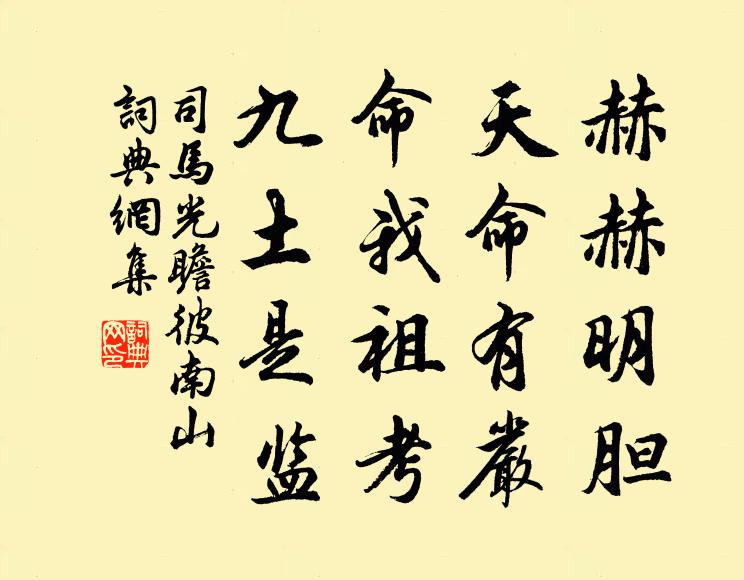 赫赫明胆
天命有嚴
命我祖考
九土是监
司馬光瞻彼南山
詞典網集
詞典网印